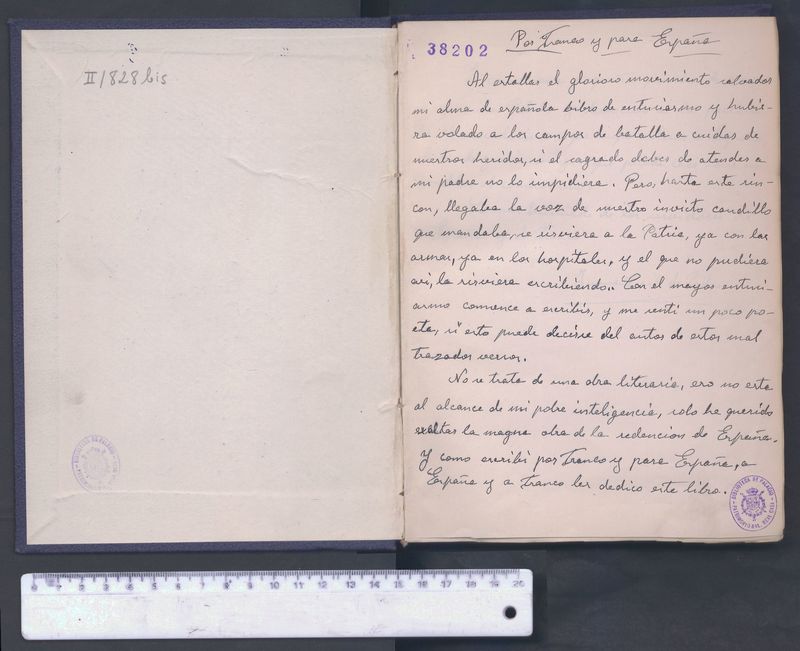 II/828 bis
38202
Por Franco y para España
Al estallar el glorioso movimiento salvador
mi alma de española vibro de entusiasmo y hubie-
ra volado a los campos de batalla a cuidar de
nuestros heridos, si el sagrado deber de atender a
mi padre no lo impidiera. Pero, hasta este rin-
con, llegaba la voz de nuestro invicto caudillo
que mandaba, se sirviera a la Patria, ya con las
armas, ya en los hospitales, y el que no pudiera
asi, la sirviera escribiendo.. Con el mayor entusi-
asmo comence a escribir, y me senti un poco po-
eta, si esto puede decirse del autor de estos mal
trazados versos.
No se trata de una obra literaria, eso no esta
al alcance de mi pobre inteligencia, solo he querido
exaltar la magna obra de la redencion de España.
Y como escribi por Franco y para España, a
España y a Franco les dedico este libro.
BIBLIOTECA DE PALACIO
BIBLIOTECA DE PALACIO
0 1 2 3 4 5 6 7 8 9 10 11 12 13 14 15 16 17 18 19 20